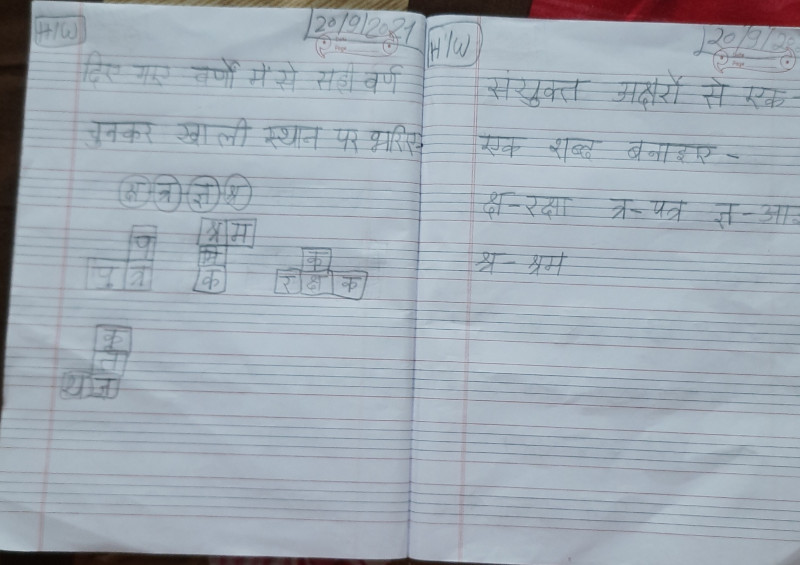 H/W
20/9/2021
दिए गए वर्णों में से सही वर्ण
चुनकर खाली स्थान पर भरिए
क्ष त्र ज्ञ श्र
प
पु त्र
श्र म
मि
क
क
र क्ष क
कृ
त
य ज्ञ
H/W
20/9/20
संयुक्त अक्षरों से एक-
एक शब्द बनाइए -
क्ष-रक्षा त्र-पत्र ज्ञ-आज
श्र- श्रम